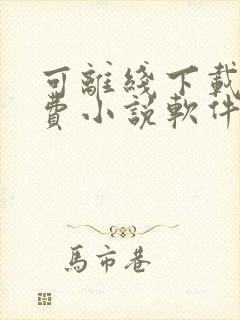 可離綫下載
費小說軟件
馬市巷